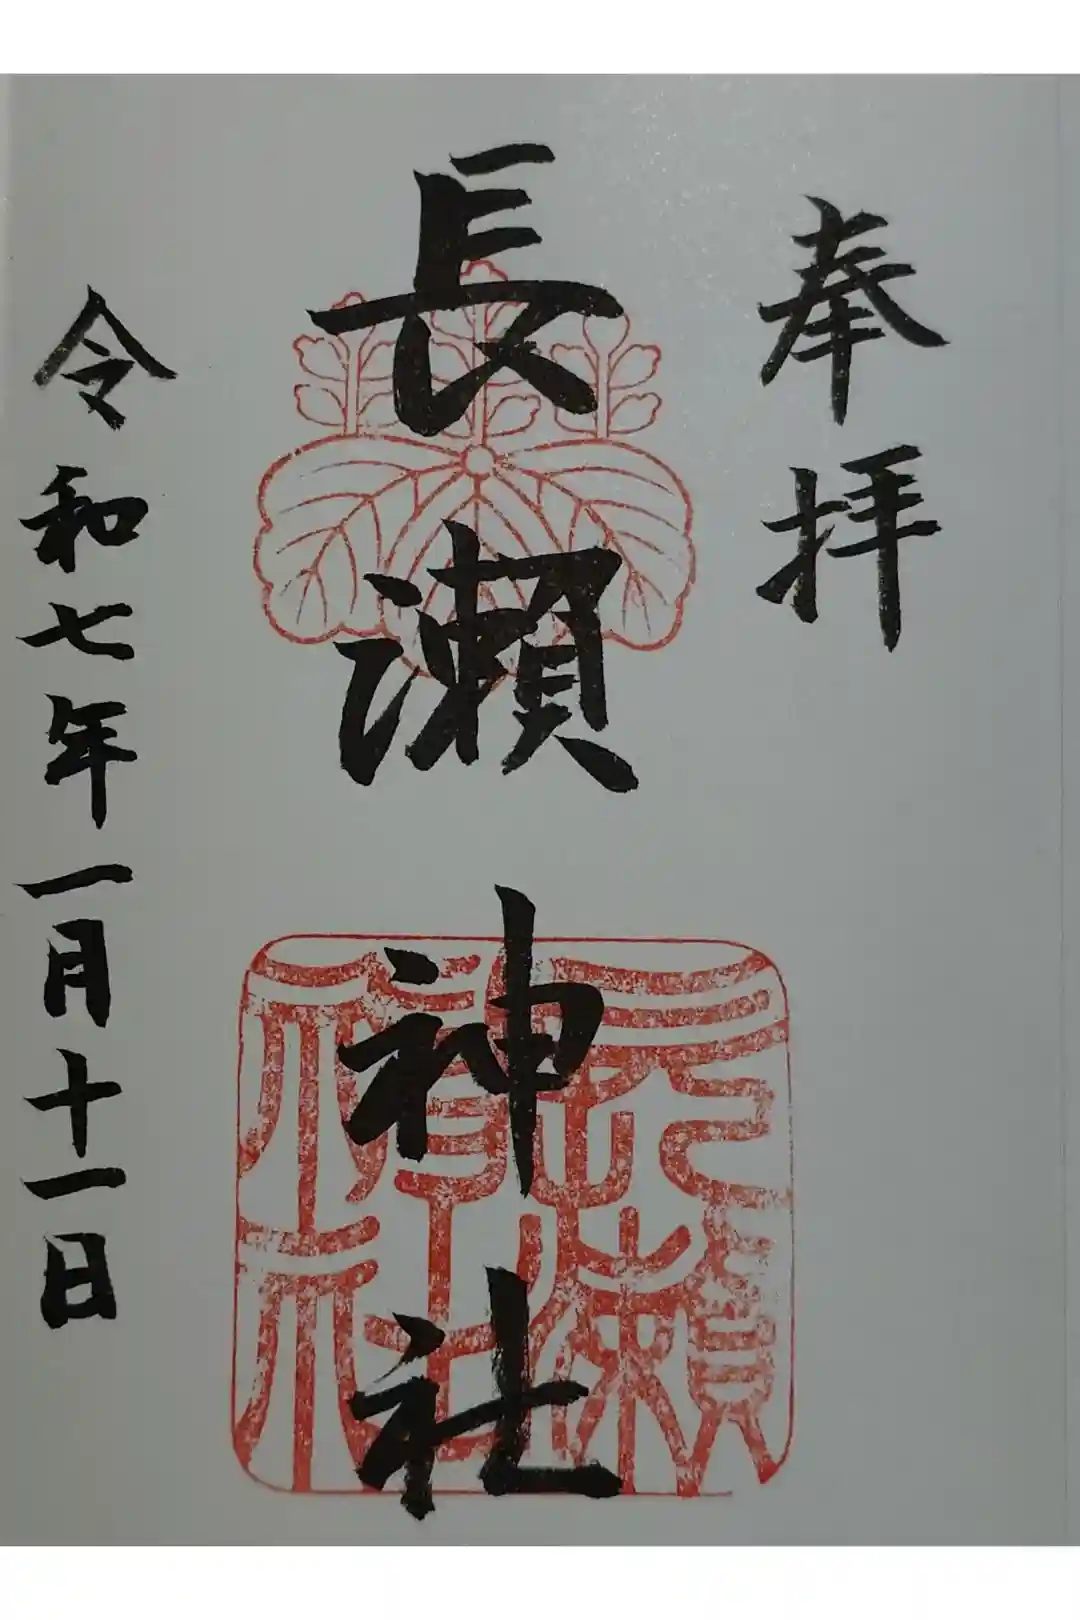 奉拝
長瀬神社
長瀬神社
令和七年一月十一日